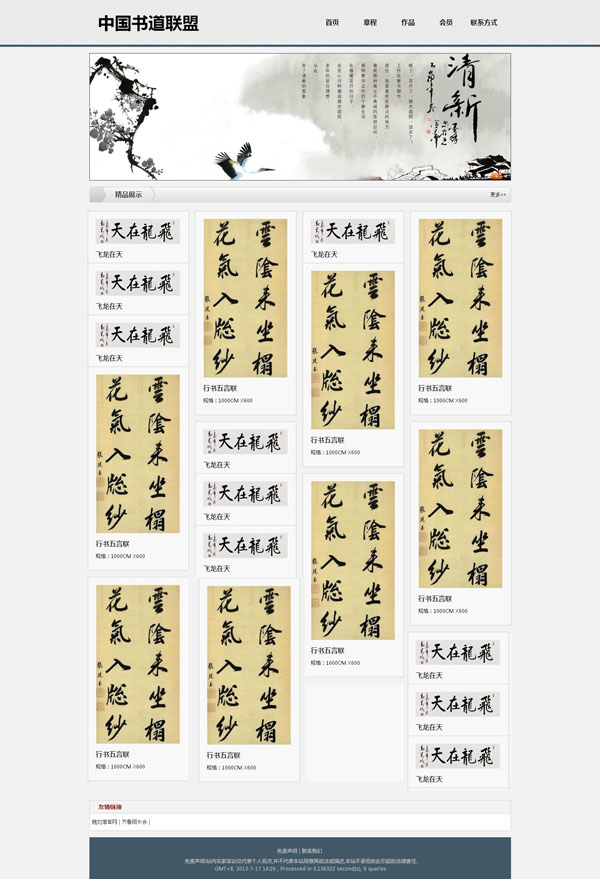 中国书道联盟
首页 章程 作品 会员 联系方式
清新
精品展示
更多>>
飛龍在天
飞龙在天
飛龍在天
飞龙在天
飛龍在天
飞龙在天
雲陰來坐榻
花氣入窗紗
行书五言联
规格：1000CM X600
雲陰來坐榻
花氣入窗紗
行书五言联
规格：1000CM X600
雲陰來坐榻
花氣入窗紗
行书五言联
规格：1000CM X600
飛龍在天
飞龙在天
飛龍在天
飞龙在天
飛龍在天
飞龙在天
雲陰來坐榻
花氣入窗紗
行书五言联
规格：1000CM X600
飛龍在天
飞龙在天
雲陰來坐榻
花氣入窗紗
行书五言联
规格：1000CM X600
雲陰來坐榻
花氣入窗紗
行书五言联
规格：1000CM X600
雲陰來坐榻
花氣入窗紗
行书五言联
规格：1000CM X600
雲陰來坐榻
花氣入窗紗
行书五言联
规格：1000CM X600
飛龍在天
飞龙在天
飛龍在天
飞龙在天
飛龍在天
飞龙在天
友情链接
免责声明 | 联系我们
免责声明:站内名家言论仅代表个人观点,并不代表本站同意其说法或描述,本站不承担由此引起的法律责任.
GMT+8, 2013-7-17 14:26 , Processed in 0.136322 second(s), 9 queries